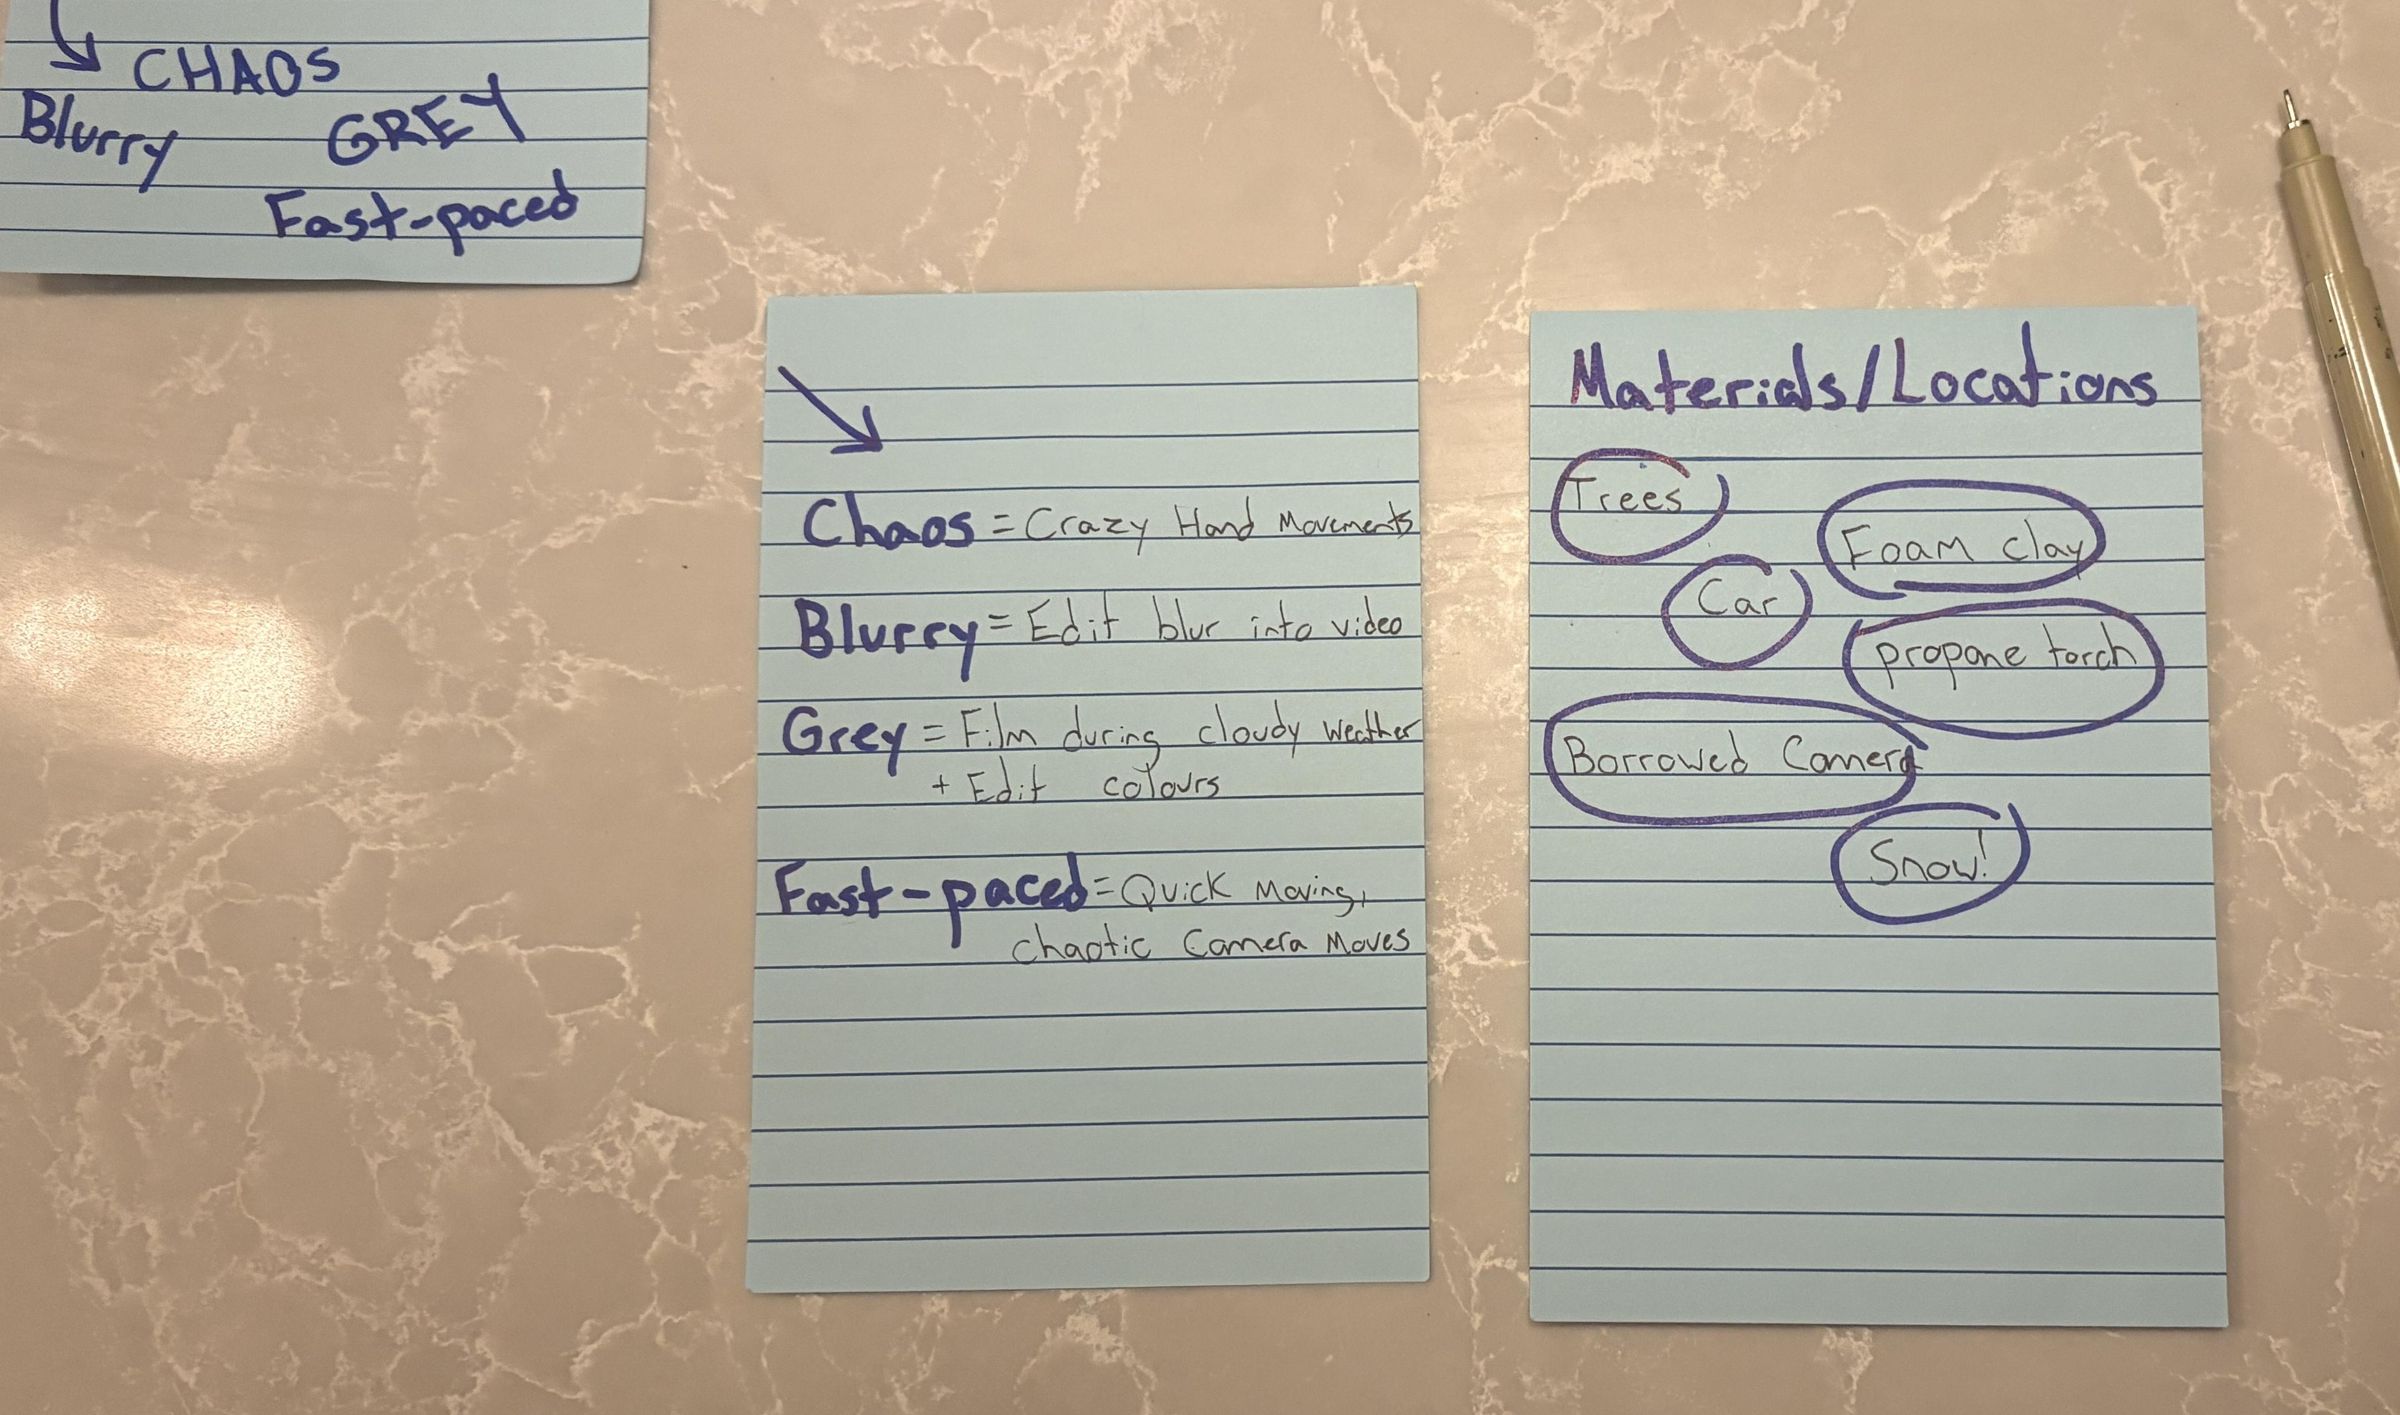 CHAOS
Blurry
GREY
Fast-paced
Chaos = Crazy Hand Movements
Blurry = Edit blur into video
Grey = Film during cloudy weather
+ Edit colours
Fast-paced = Quick Moving,
chaotic Camera Moves
Materials/Locations
Trees
Foam clay
Car
propane torch
Borrowed Camera
Snow!